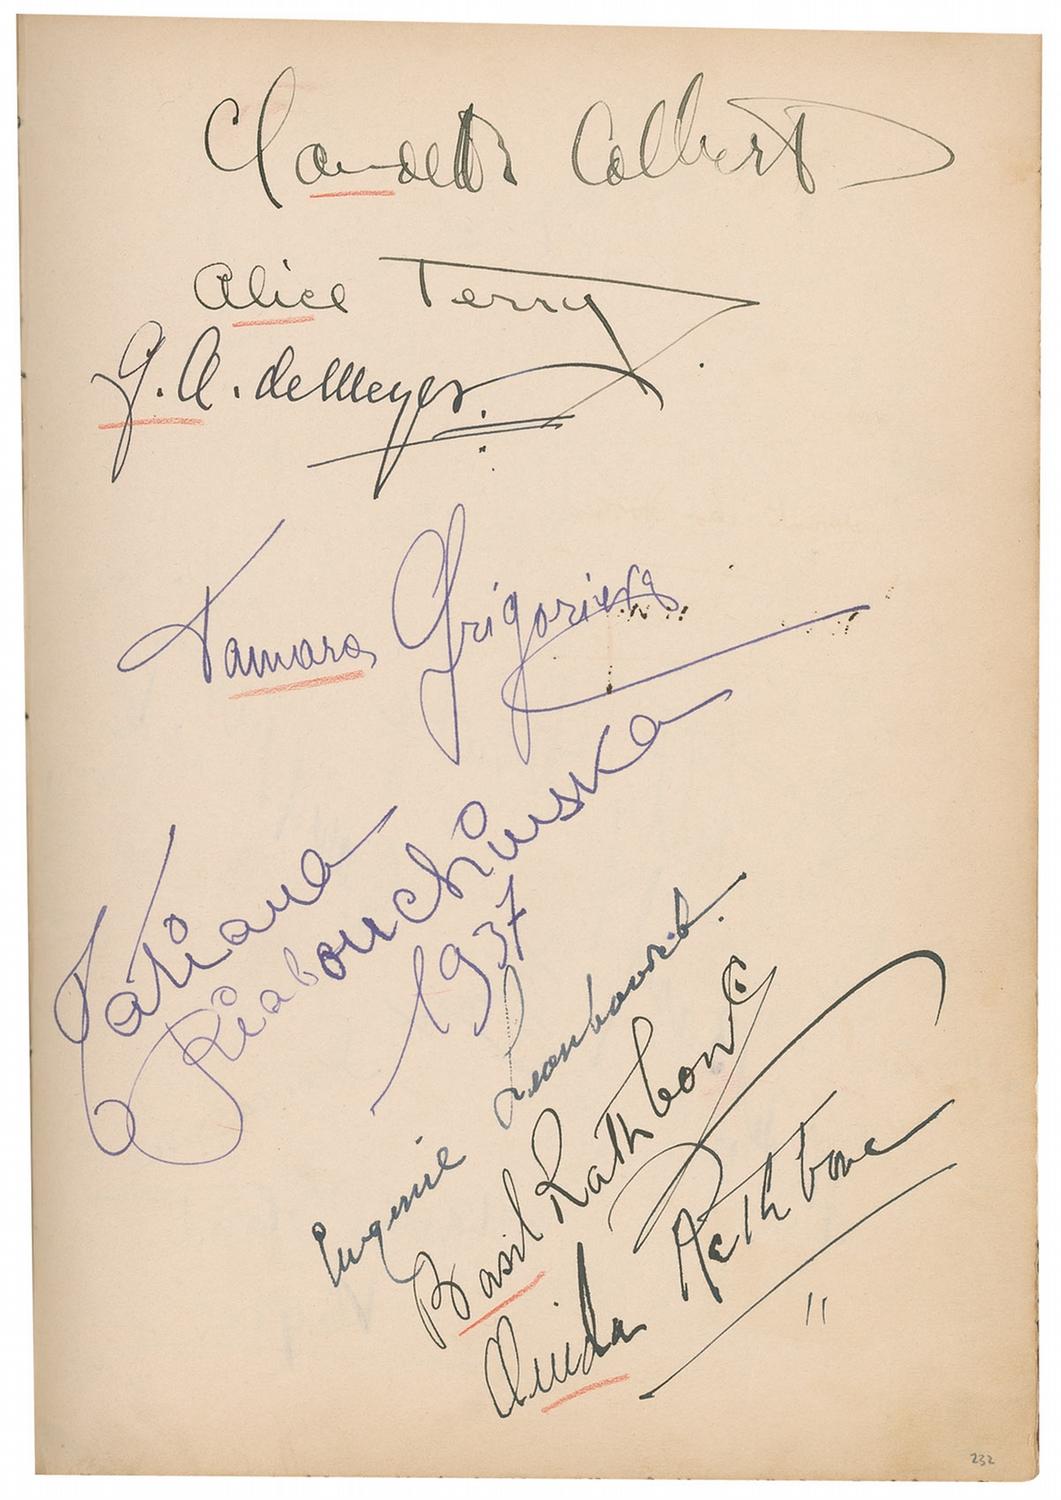 Claudette Colbert
Alice Terry
G. A. de Meyer.
Tamara Grigorieva
Tatiana
Riabouchinska
1937
Eugenie Leontovich.
Basil Rathbone
Ouida Rathbone
"
232